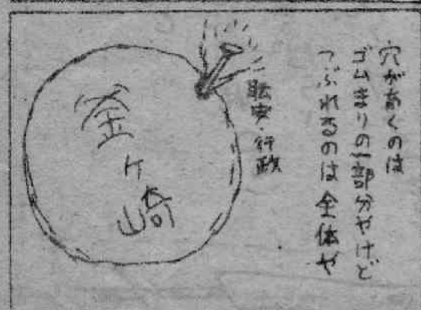 穴があくのは
ゴムまりの一部分やけど
つぶれるのは全体や
耺安・行政
釜ヶ崎